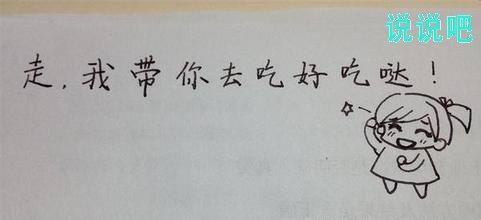 说说吧
走,我带你去吃好吃哒!